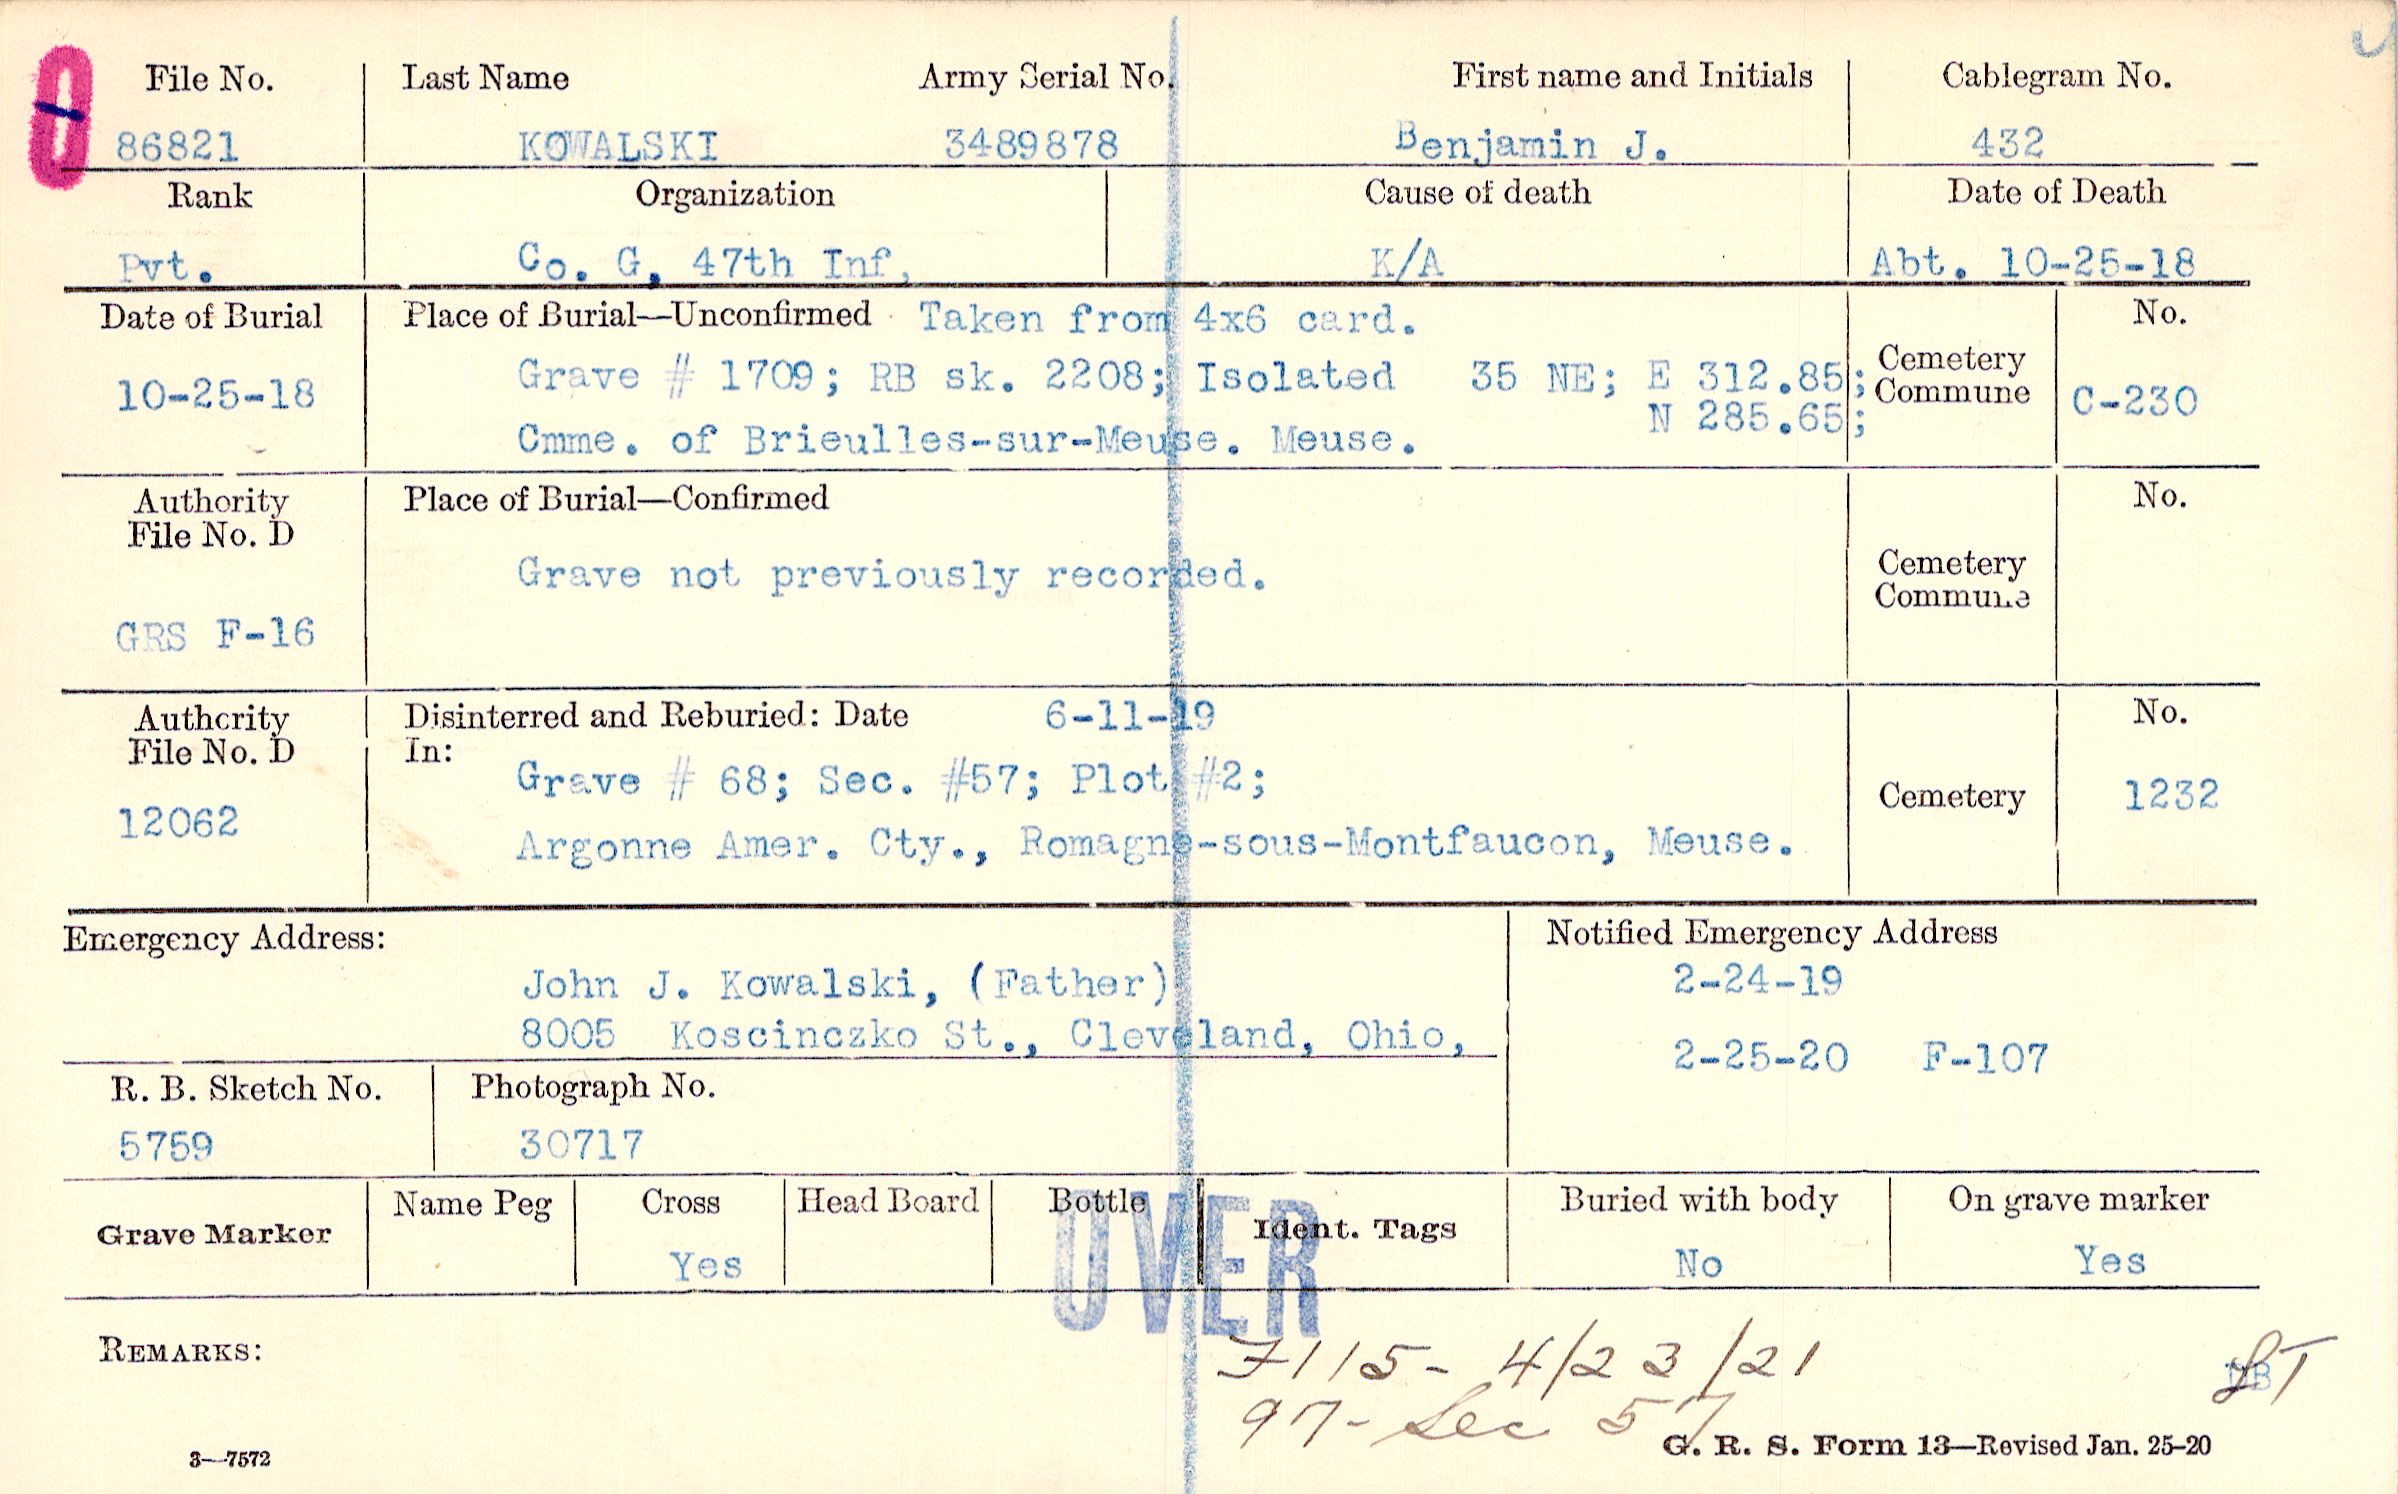 File No. Last Name Army Serial No. First name and Initials Cablegram No.
86821 KOWALSKI 3489878 Benjamin J. 432
Rank Organization Cause of death Date of Death
Pvt. Co. G, 47th Inf, K/A Abt. 10-25-18
Date of Burial Place of Burial—Unconfirmed Taken from 4x6 card. No.
10-25-18 Grave # 1709; RB sk. 2208; Isolated 35 NE; E 312.85; Cemetery Commune C-230
N 285.65;
Cmme. of Brieulles-sur-Meuse. Meuse.
Authority File No. D Place of Burial—Confirmed No.
Grave not previously recorded. Cemetery Commune
GRS F-16
Authority File No. D Disinterred and Reburied: Date 6-11-19 No.
In:
Grave # 68; Sec. #57; Plot #2;
12062 Cemetery 1232
Argonne Amer. Cty., Romagne-sous-Montfaucon, Meuse.
Emergency Address: Notified Emergency Address
John J. Kowalski, (Father) 2-24-19
8005 Koscinczko St., Cleveland, Ohio, 2-25-20 F-107
R. B. Sketch No. Photograph No.
5759 30717
Grave Marker Name Peg Cross Head Board Bottle Ident. Tags Buried with body On grave marker
Yes No Yes
OVER
REMARKS:
F115- 4/23/21
97- Sec 57
3—7572 G. R. S. Form 13—Revised Jan. 25-20